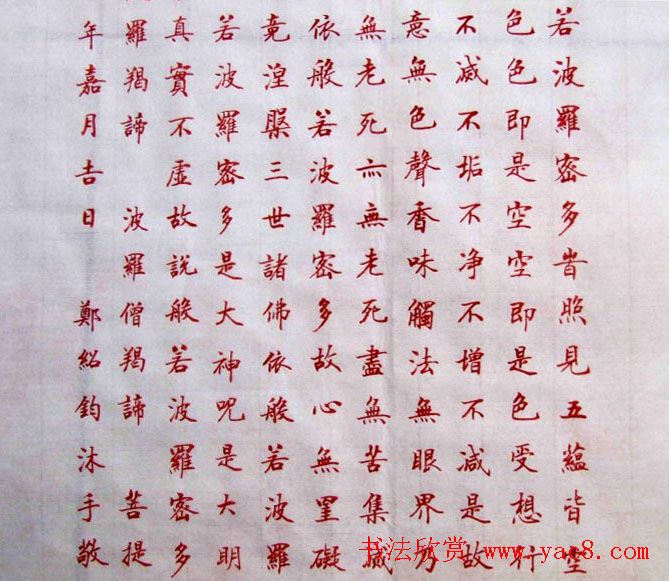 若波羅密多昔照見五蘊皆空
色色即是空空即是色受想行
不滅不垢不净不增不減是故
意無色聲香味觸法無眼界乃
無老死亦無老死盡無苦集滅
依般若波羅密多故心無罣礙
竟涅槃三世諸佛依般若波羅
若波羅密多是大神咒是大明
真實不虛故說般若波羅密多
羅羯諦 波羅僧羯諦 菩提
年嘉月吉日 鄭紹鈞沐手敬
书法欣赏 www.yac8.com